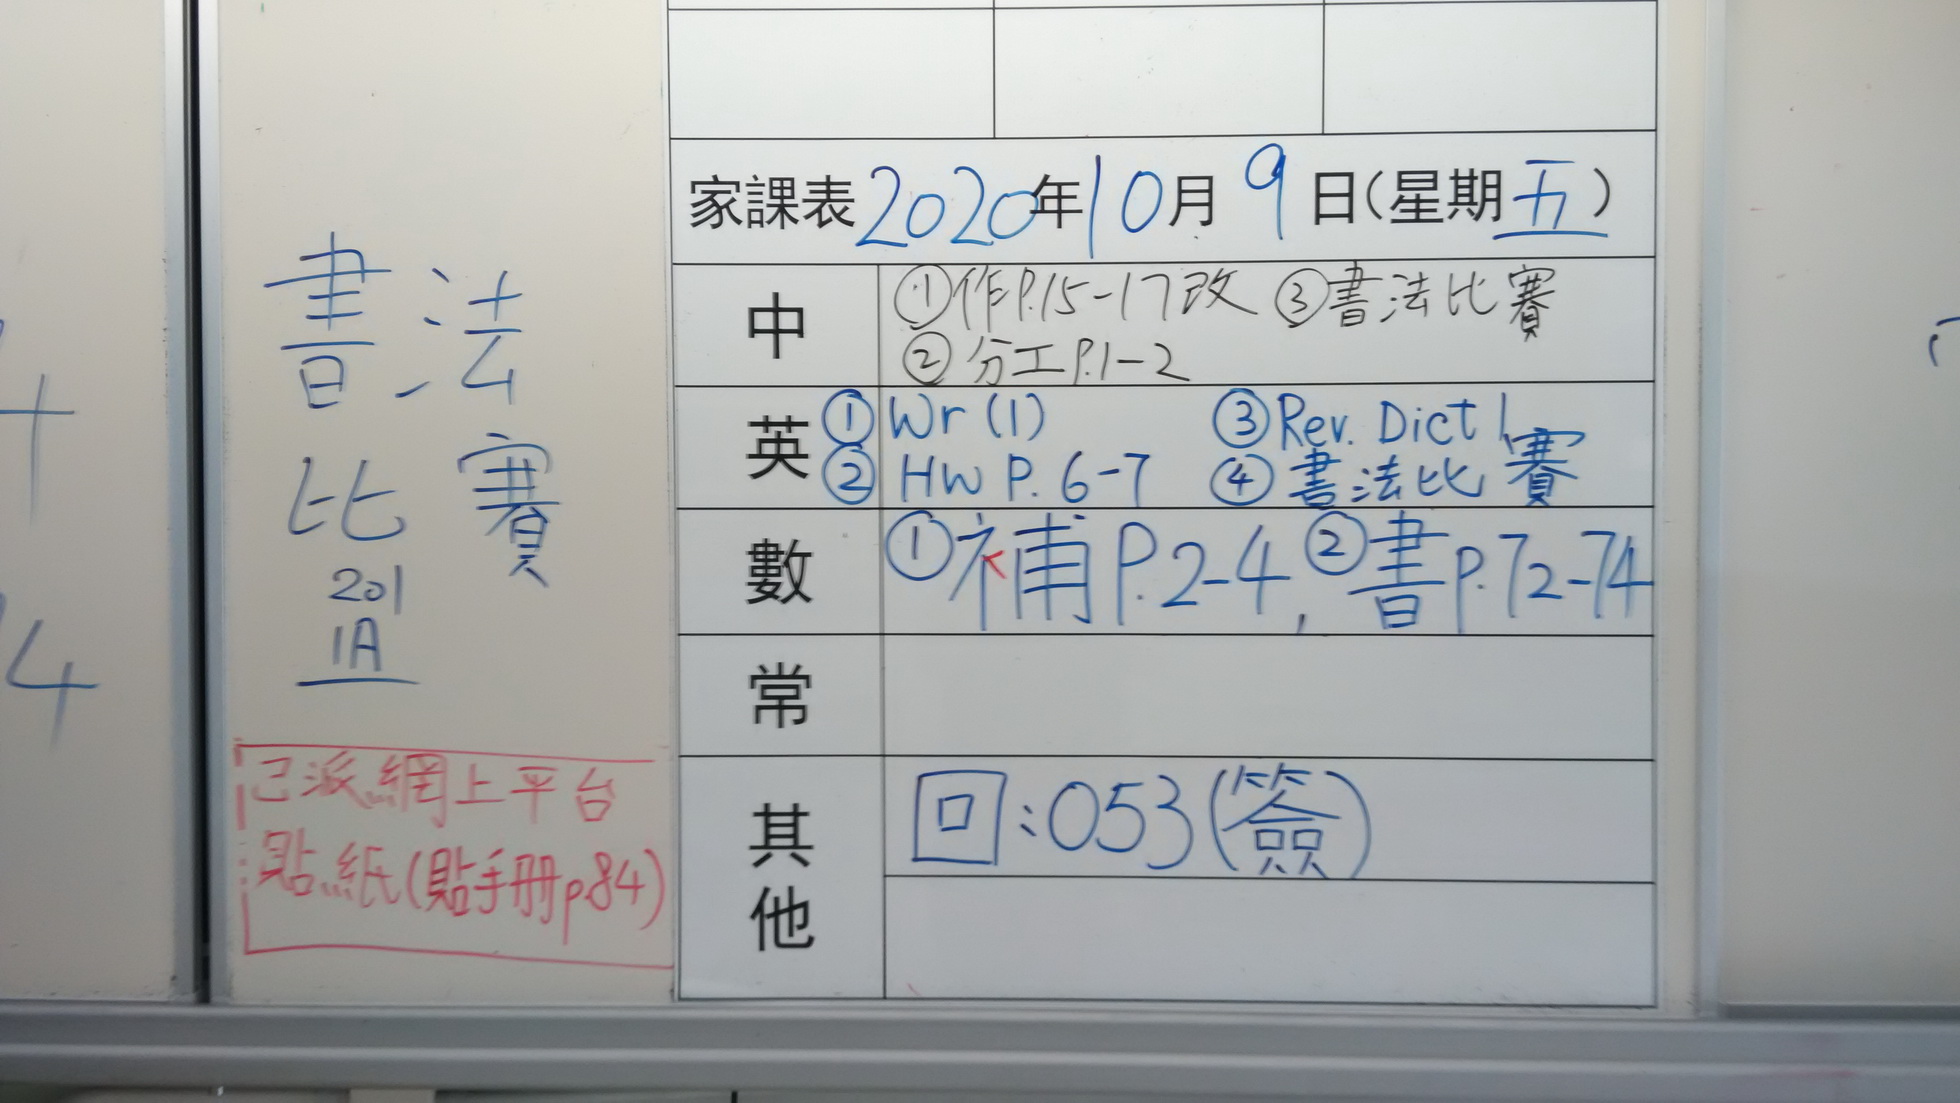 書法
比賽
201
1A
已派網上平台
貼紙(貼手册p.84)
家課表2020年10月9日(星期五)
中
①作P.15-17改 ③書法比賽
②分工P.1-2
英
①Wr (1) ③Rev. Dict 1
②HW P. 6-7 ④書法比賽
數
①補P.2-4, ②書P.72-74
常
其他
回:053(簽)